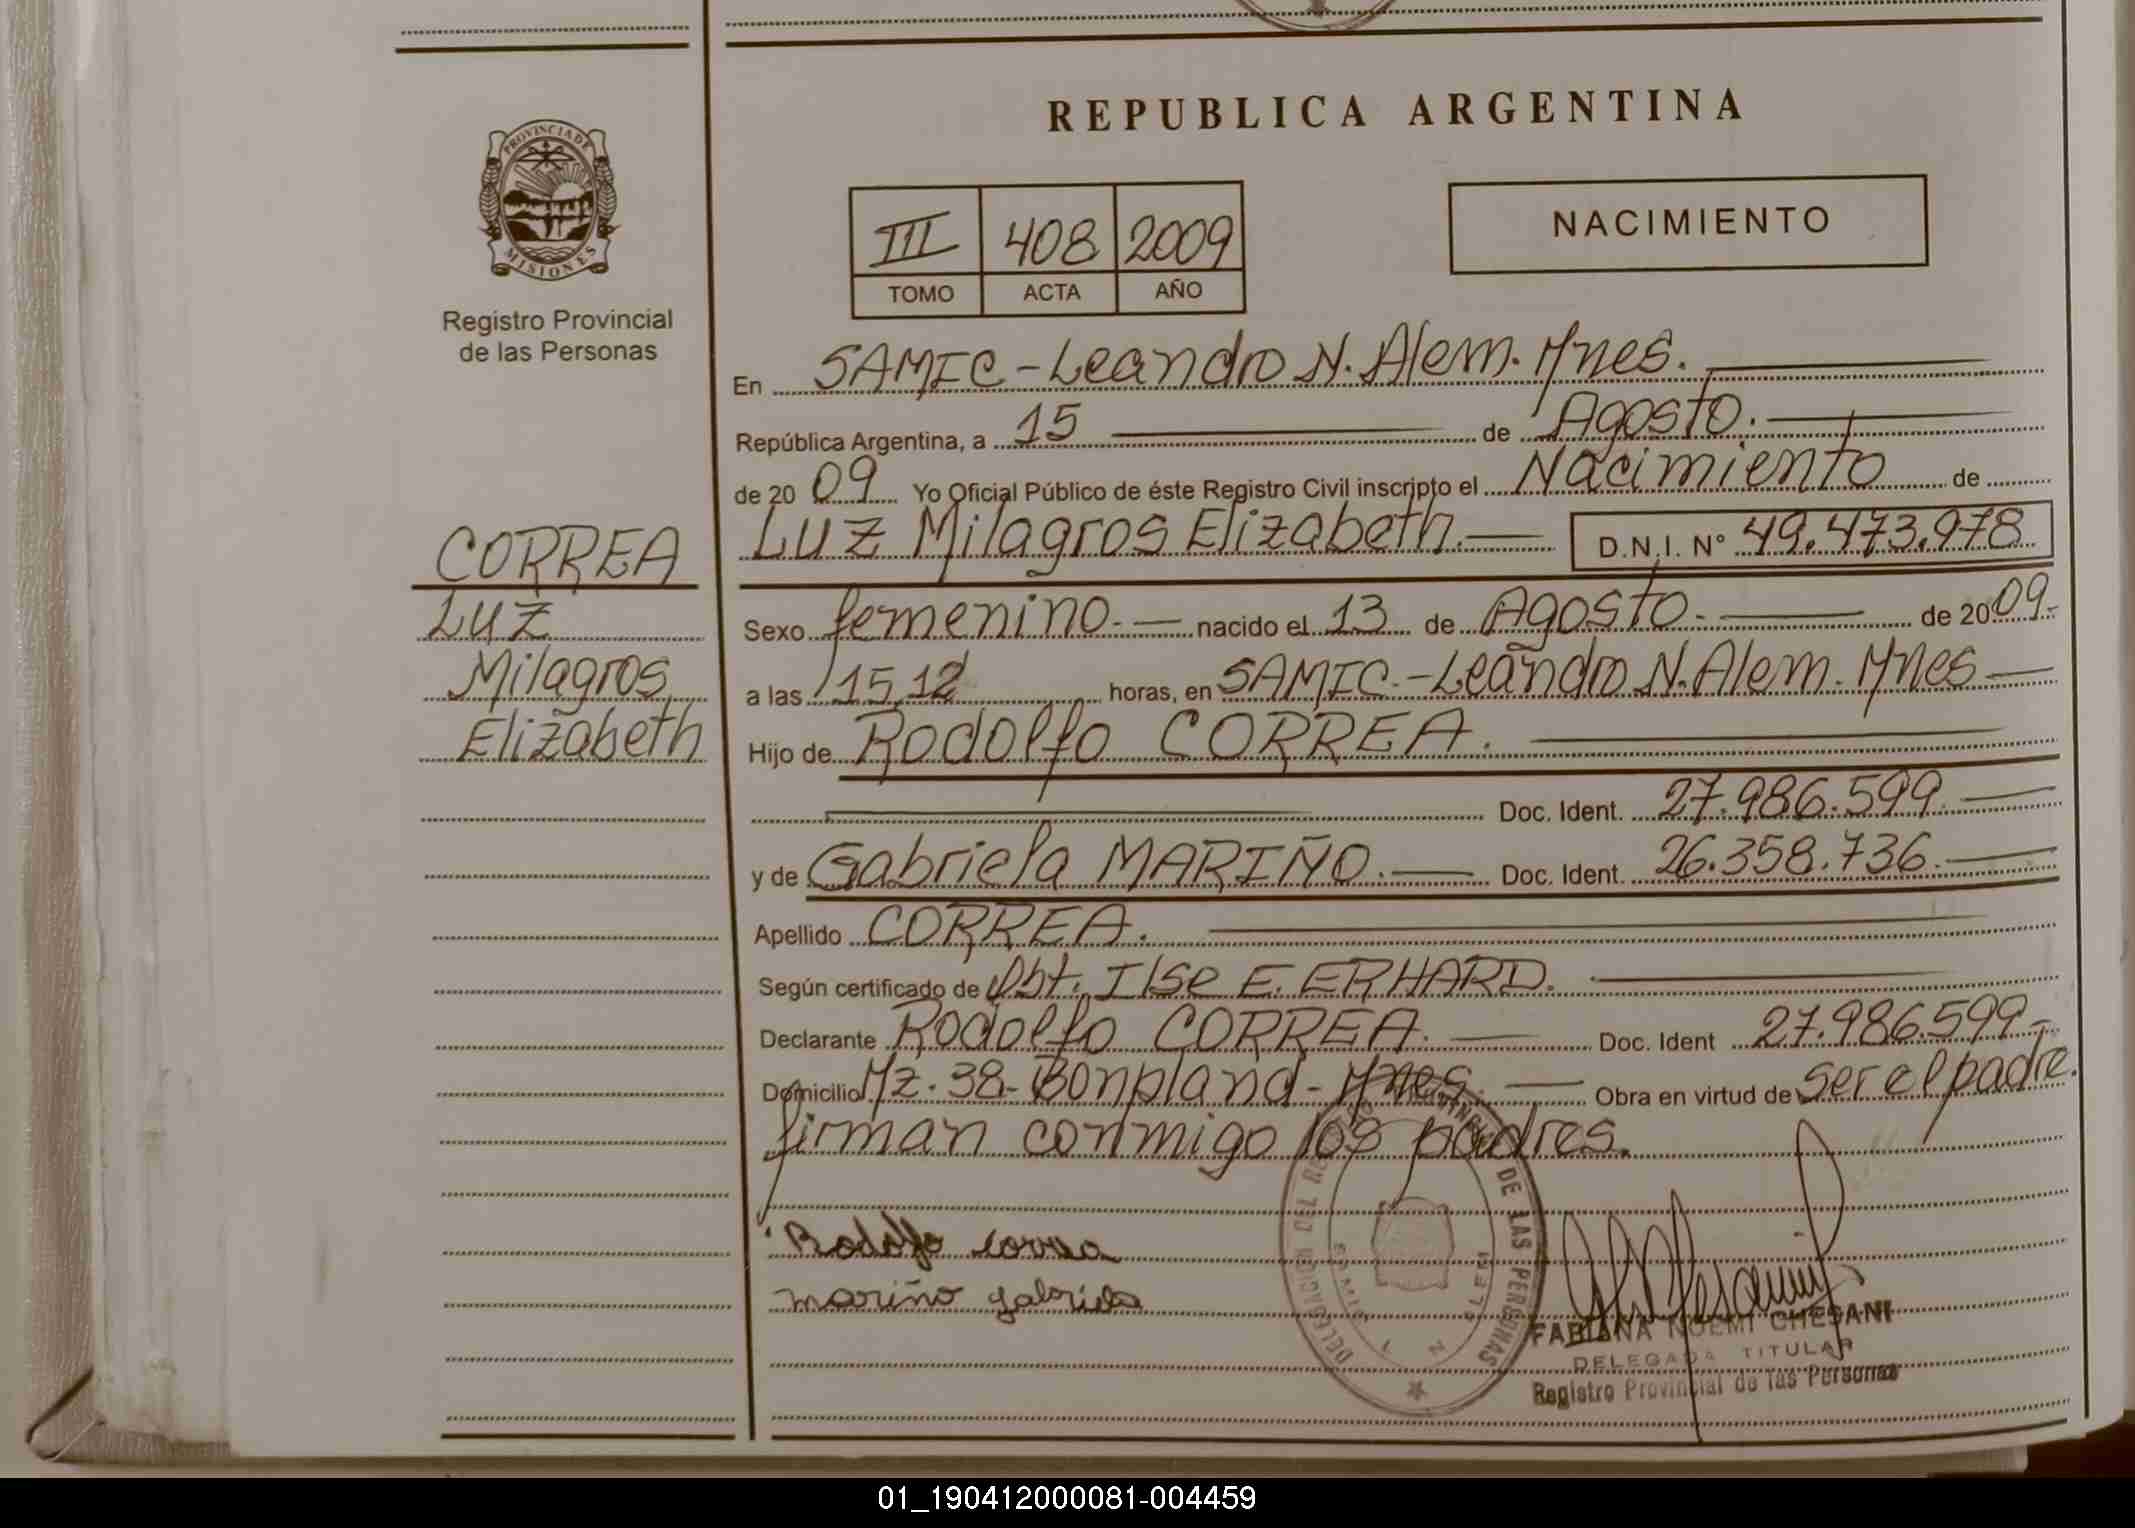 REPUBLICA ARGENTINA
PROVINCIA DE
MISIONES
Registro Provincial
de las Personas
III 408 2009
TOMO ACTA AÑO
NACIMIENTO
En SAMIC-Leandro N. Alem. Mnes.
República Argentina, a 15 de Agosto.
de 20 09 Yo Oficial Público de éste Registro Civil inscripto el Nacimiento de
Luz Milagros Elizabeth. D.N.I. N° 49.473.978
CORREA
Luz
Milagros
Elizabeth
Sexo femenino. nacido el 13 de Agosto. de 20 09.
a las 15,12 horas, en SAMIC.-Leandro N. Alem. Mnes
Hijo de Rodolfo CORREA.
Doc. Ident. 27.986.599
y de Gabriela MARIÑO. Doc. Ident. 26.358.736.
Apellido CORREA.
Según certificado de Obt. Ilse E. ERHARD.
Declarante Rodolfo CORREA. Doc. Ident 27.986.599-
Domicilio Mz. 38- Bonpland- Mnes. Obra en virtud de ser el padre.
firman conmigo los padres.
Rodolfo correa
mariño gabriela
DE LAS PERSONAS
FABIANA NOEMI CHESANI
DELEGADA TITULAR
Registro Provincial de las Personas
01_190412000081-004459